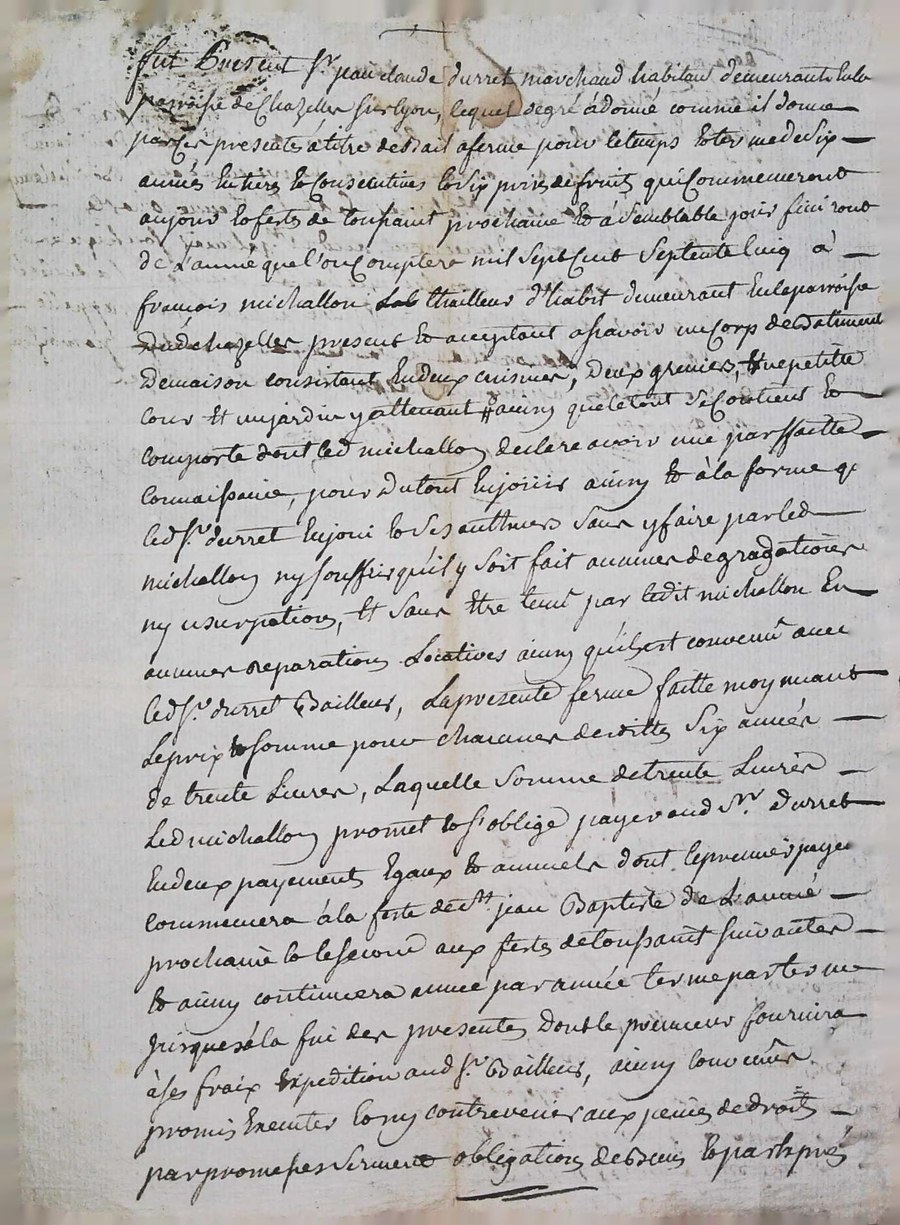 fut Present Sr jean claude durret marchand habitant demeurant en la
parroisse de Chazelles sur lyon, lequel de gré à donné comme il donne
par ces presentes à titre de Bail a ferme pour le temps et terme de six
années entieres et consecutives et six prises de fruits qui Commenceront
au jour et feste de toussaint prochaine et à semblable jour finiront
de L'année que l'on Comptera mil Sept Cent Septente Cinq à
françois michallon thailleur d'habit demeurant en la parroisse
dud chazelles present et acceptant asçavoir un Corps de Batiment
De maison consistant en deux cuisines, deux greniers, une petite
cour et un jardin y attenant ainsy que le tout se Contient et
comporte dont led michallon declare avoir une parffaitte
Connaissance, pour du tout en jouir ainsy et à la forme q
led Sr durret en joui et ses autheurs sans y faire par led
michallon ny souffrir qu'il y soit fait aucunes degradations
ny usurpations, et sans être tenu par ledit michallon en
aucunes reparations Locatives ainsy qu'il est convenu avec
led Sr durret Bailleur, La presente ferme faitte moyenant
Le prix et somme pour chacunes desdittes six années
de trente Livres, Laquelle somme de trente Livres
Led michallon promet et s'oblige payer aud Sr durret
en deux payements egaux et annuels dont le premier paye
commencera à la feste de St jean Baptiste de L'année
prochaine et le second aux festes de toussaint suivantes
et ainsy continuera année par année terme par terme
jusques à la fin des presentes dont le preneur fournira
à ses fraix expedition aud Sr Bailleur, ainsy convenu
promis executer et ny contrevenir aux peines de droits
par promesses serment obligations de Biens et par exprés